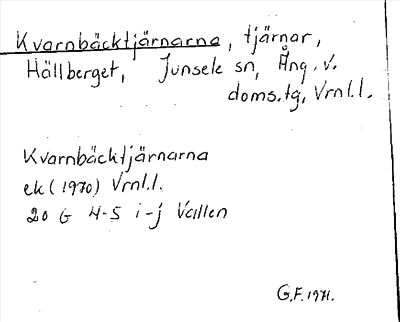 Kvarnbäcktjärnarna, tjärnar,
Hällberget, Junsele sn, Ång. v.
doms.tg, Vrnl.l.
Kvarnbäcktjärnarna
ek (1970) Vrnl.l.
20 G 4-5 i-j Vallen
G.F. 1971.